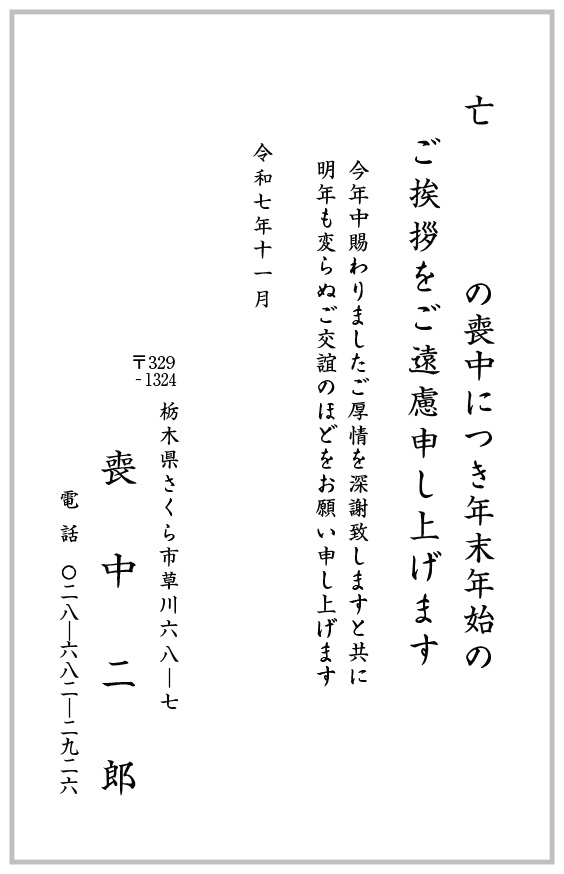 亡　　　の喪中につき年末年始の
ご挨拶をご遠慮申し上げます
今年中賜わりましたご厚情を深謝致しますと共に
明年も変らぬご交誼のほどをお願い申し上げます
令和七年十一月
〒329
-1324
栃木県さくら市草川六八―七
喪中二郎
電話　〇二八―六八二―二九二六